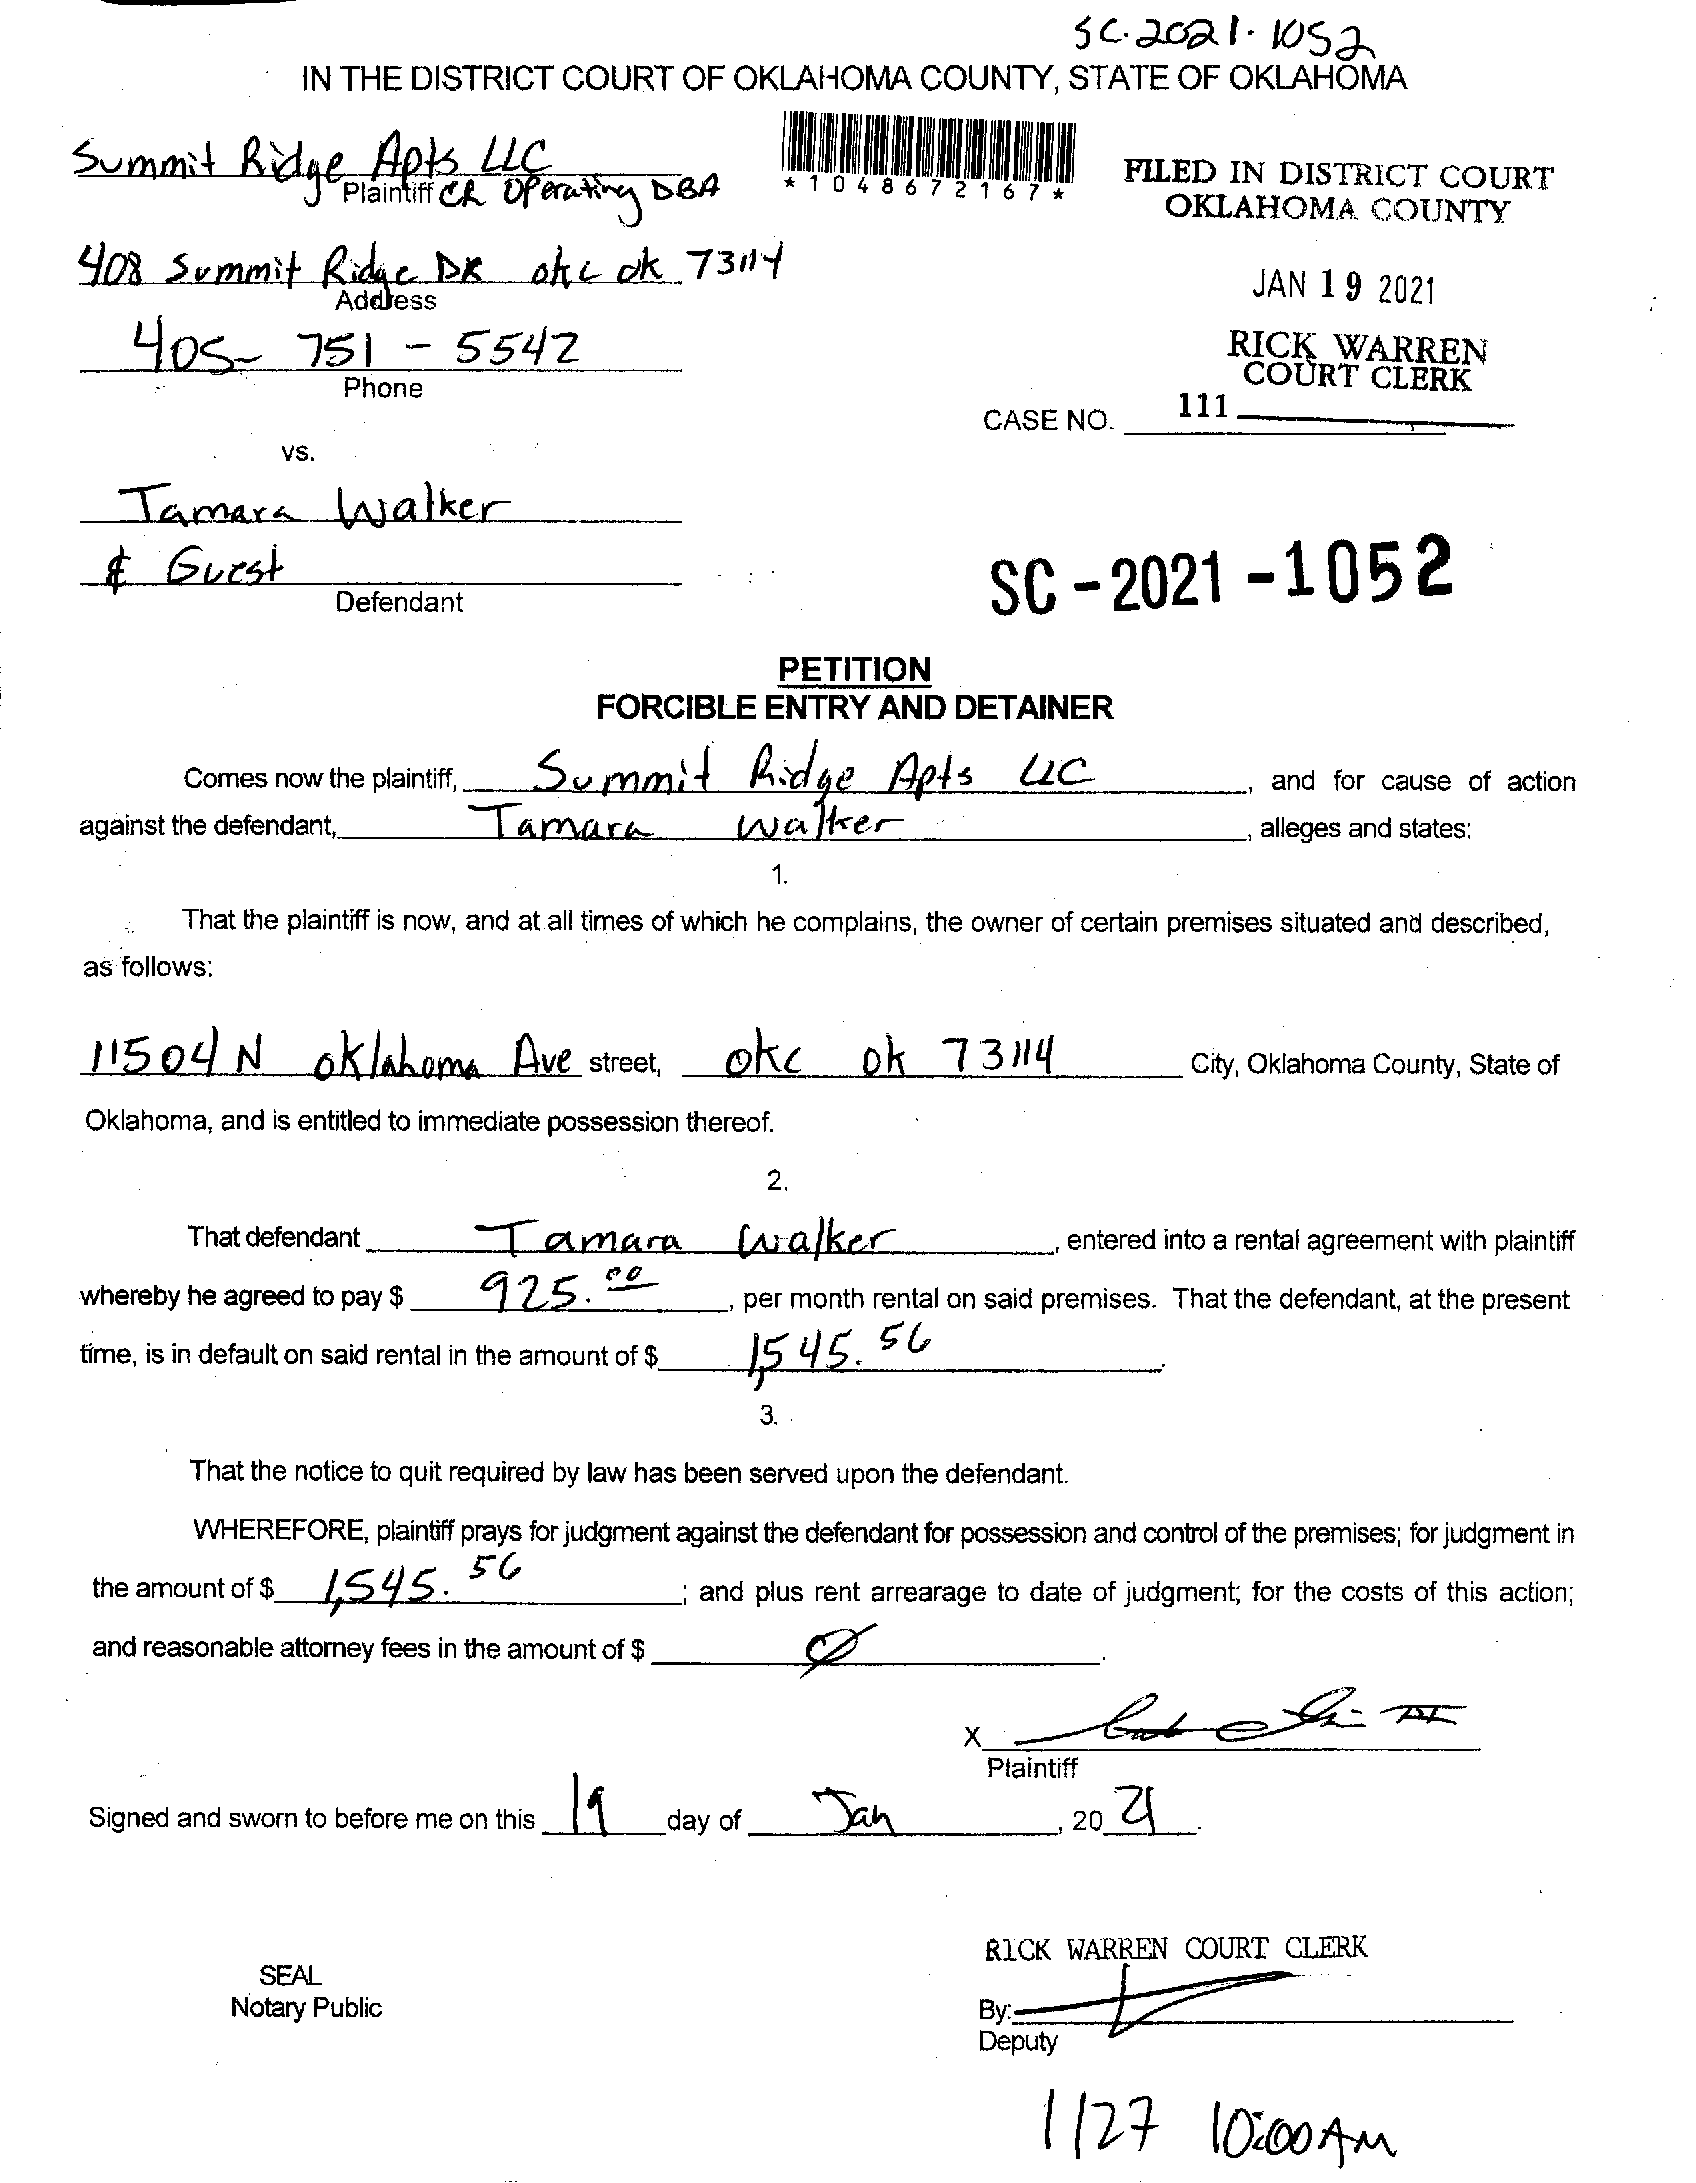 SC-2021-1052
IN THE DISTRICT COURT OF OKLAHOMA COUNTY, STATE OF OKLAHOMA
Summit Ridge Apts LLC
Plaintiff CR Operating DBA
*1048672167*
FILED IN DISTRICT COURT
OKLAHOMA COUNTY
408 Summit Ridge DR okc ok 73114
Address
JAN 19 2021
405- 751 - 5542
Phone
RICK WARREN
COURT CLERK
CASE NO. 111
vs.
Tamara Walker
& Guest
Defendant
SC-2021-1052
PETITION
FORCIBLE ENTRY AND DETAINER
Comes now the plaintiff, Summit Ridge Apts LLC, and for cause of action
against the defendant, Tamara Walker, alleges and states:
1.
That the plaintiff is now, and at all times of which he complains, the owner of certain premises situated and described,
as follows:
11504 N oklahoma Ave street, okc ok 73114 City, Oklahoma County, State of
Oklahoma, and is entitled to immediate possession thereof.
2.
That defendant Tamara Walker, entered into a rental agreement with plaintiff
whereby he agreed to pay $ 925.00, per month rental on said premises. That the defendant, at the present
time, is in default on said rental in the amount of $ 1,545.56.
3.
That the notice to quit required by law has been served upon the defendant.
WHEREFORE, plaintiff prays for judgment against the defendant for possession and control of the premises; for judgment in
the amount of $ 1,545.56; and plus rent arrearage to date of judgment; for the costs of this action;
and reasonable attorney fees in the amount of $ Ø.
X
Plaintiff
Signed and sworn to before me on this 19 day of Jan, 20 21.
RICK WARREN COURT CLERK
SEAL
Notary Public
By:
Deputy
1/27 10:00 AM